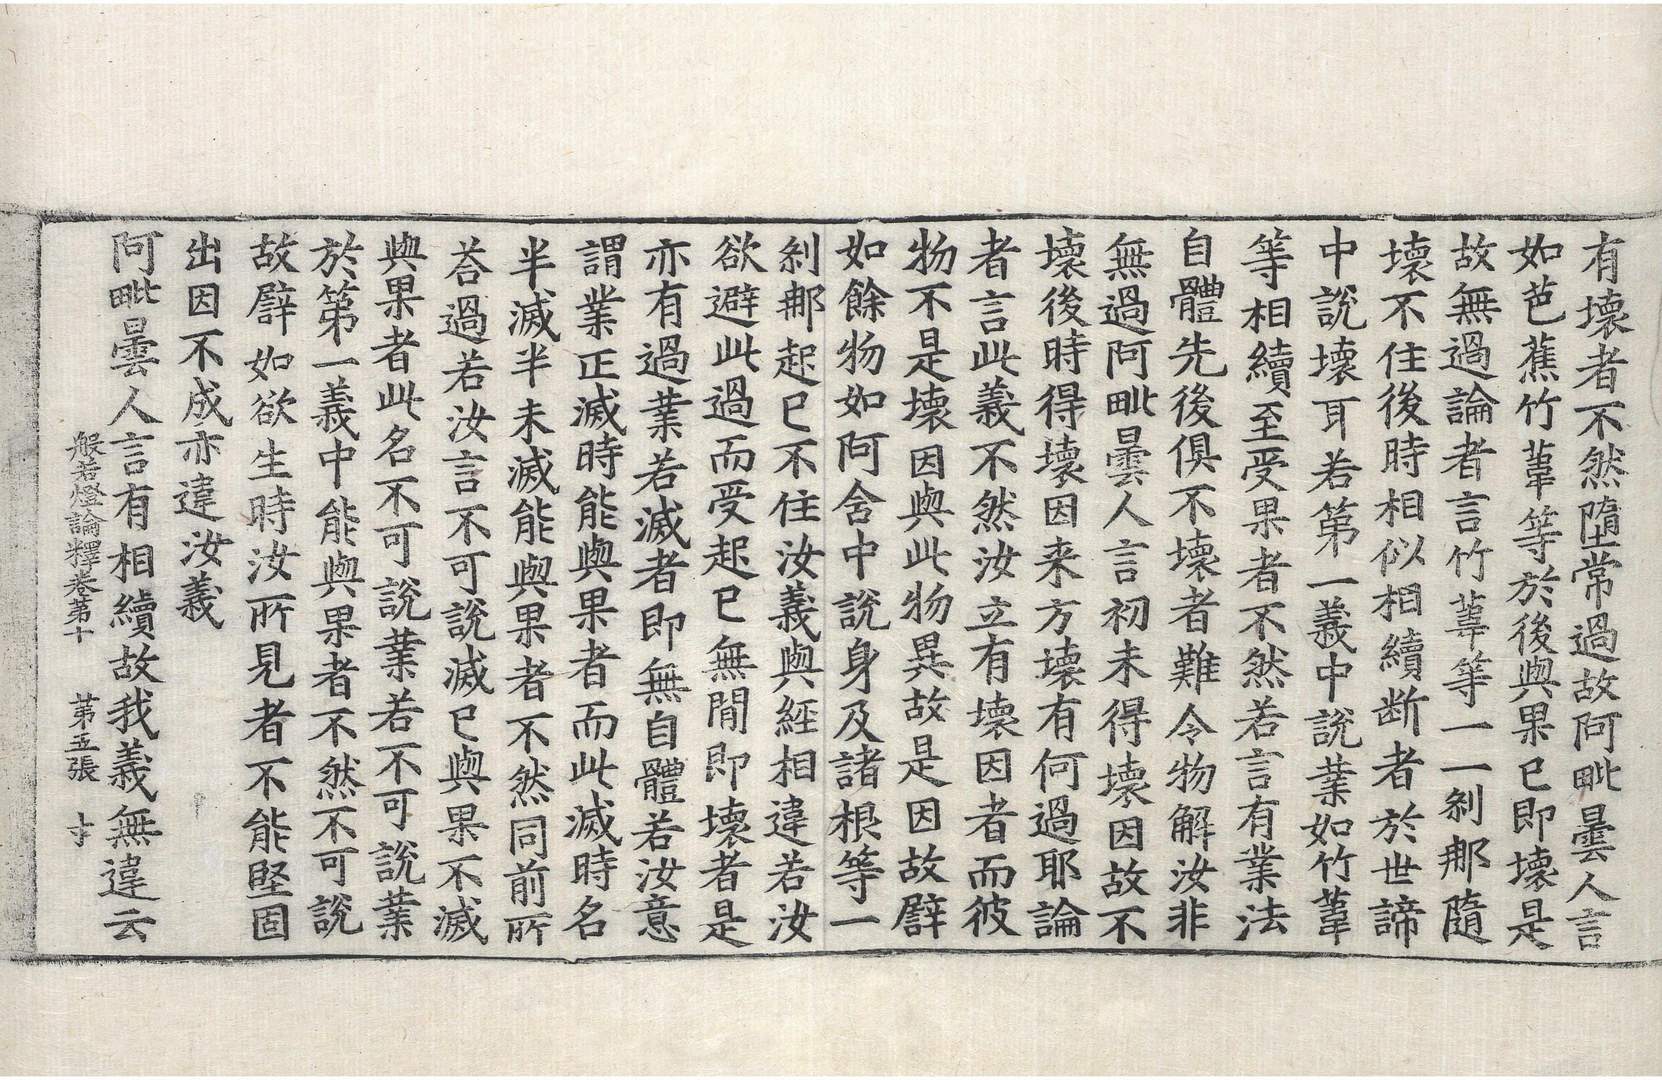 有壞者不然墮常過故阿毗曇人言
如芭蕉竹葦等於後與果已即壞是
故無過論者言竹葦等一一剎那隨
壞不住後時相似相續断者於世諦
中說壞耳若第一義中說業如竹葦
等相續至受果者不然若言有業法
自體先後俱不壞者難令物解汝非
無過阿毗曇人言初未得壞因故不
壞後時得壞因来方壞有何過耶論
者言此義不然汝立有壞因者而彼
物不是壞因與此物異故是因故譬
如餘物如阿舍中說身及諸根等一
剎那起已不住汝義與經相違若汝
欲避此過而受起已無間即壞者是
亦有過業若滅者即無自體若汝意
謂業正滅時能與果者而此滅時名
半滅半未滅能與果者不然同前所
荅過若汝言不可說滅已與果不滅
與果者此名不可說業若不可說業
於第一義中能與果者不然不可說
故譬如欲生時汝所見者不能堅固
出因不成亦違汝義
阿毗曇人言有相續故我義無違云
般若燈論釋卷第十 第五張 寸